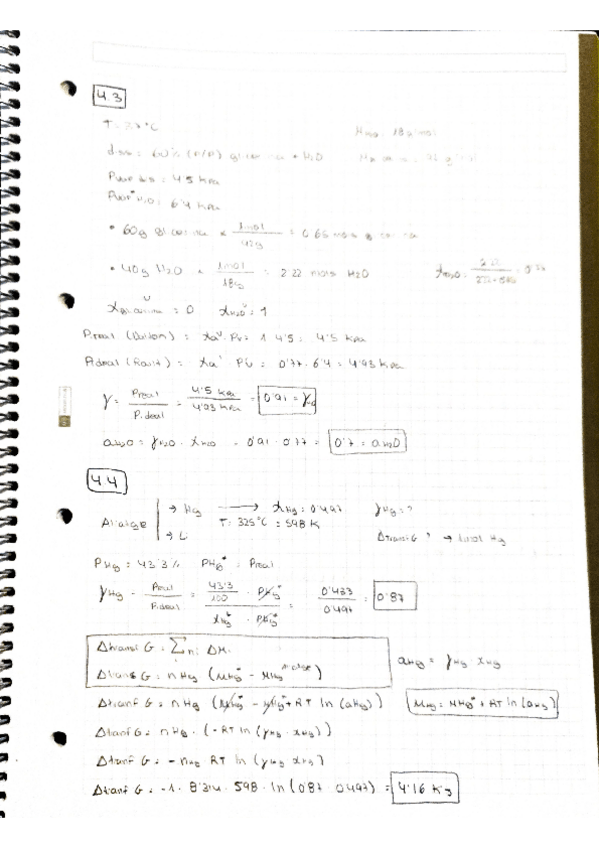 4.3
T = 37°C
diss = 60% (P/P) glicerina + H2O
Pvap diss = 4'5 kPa
Pvap* H2O = 6'4 kPa
• 60g glicerina x 1mol / 92g = 0'65 mols glicerina
• 40g H2O x 1mol / 18g = 2'22 mols H2O
X glicerina^v = 0 X H2O^v = 1
P.real (Dalton) = Xa^v · Pv = 1 · 4'5 = 4'5 kPa
P.ideal (Raoult) = Xa^l · Pv = 0'77 · 6'4 = 4'93 kPa
γ = P.real / P.ideal = 4'5 kPa / 4'93 kPa = 0'91 = γ
aH2O = γH2O · XH2O = 0'91 · 0'77 = 0'7 = aH2O
4.4
Aliatge → Hg → XHg = 0'497 γHg = ?
→ Li T = 325°C = 598 K ΔtransfG ? → 1mol Hg
PHg = 43'3% PHg* = Preal
γHg = Preal / P.ideal = 43'3 / 100 · PHg* / XHg · PHg* = 0'433 / 0'497 = 0'87
aHg = γHg · XHg
Δtransf G = nHg (μHg* - μHg* + RT ln (aHg)) μHg = μHg* + RT ln (aHg)
Δtranf G = nHg · (-RT ln (γHg · XHg))
Δtranf G = - nHg RT ln (γHg XHg)
Δtranf G = -1 · 8'314 · 598 · ln (0'87 · 0'497) = 4'16 Kj